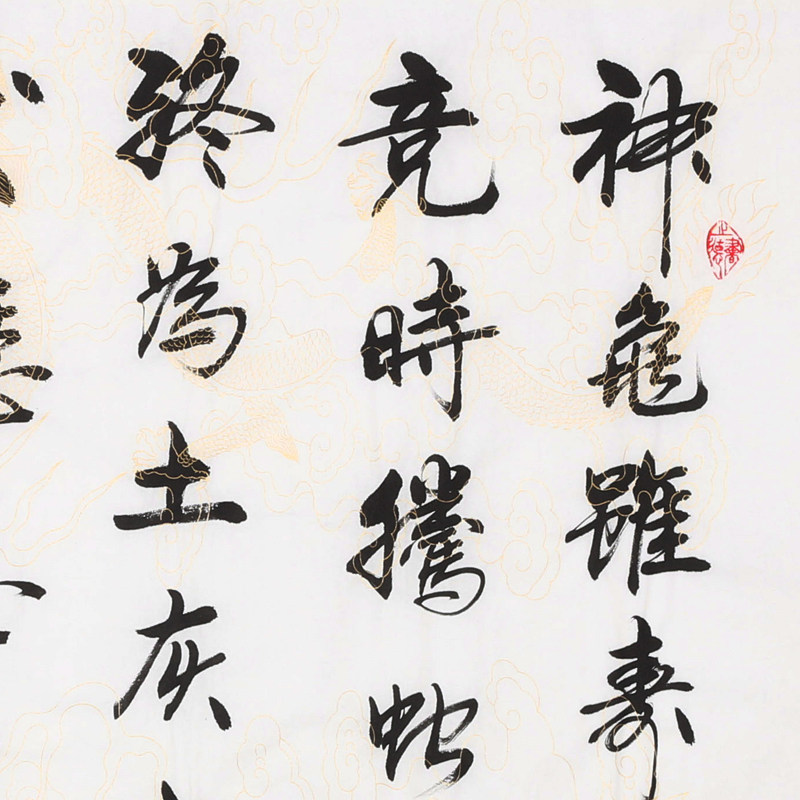 神龟雖寿
竟時騰蛇
終為土灰